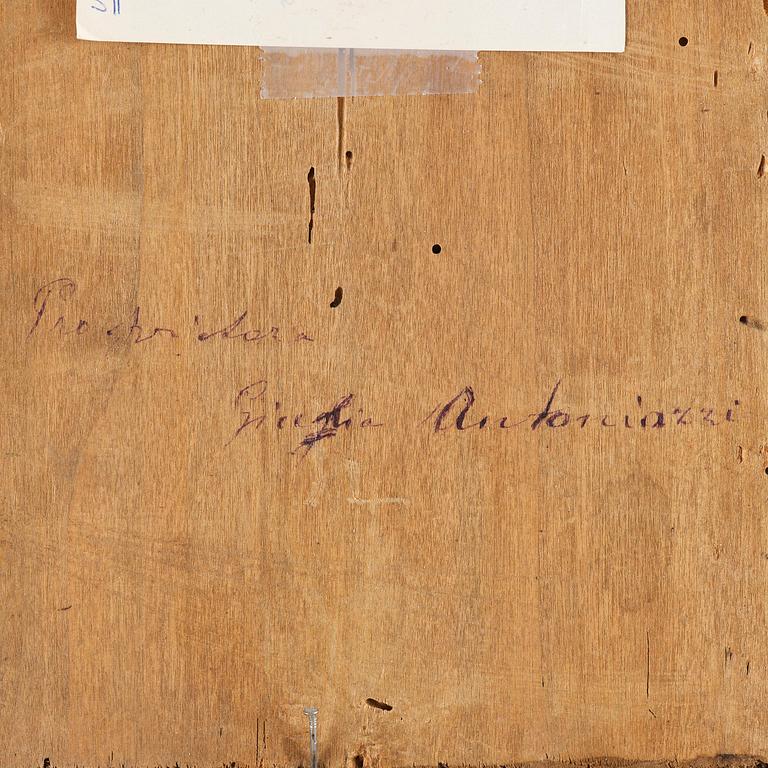 Proprietara
Giulia Antoniazzi